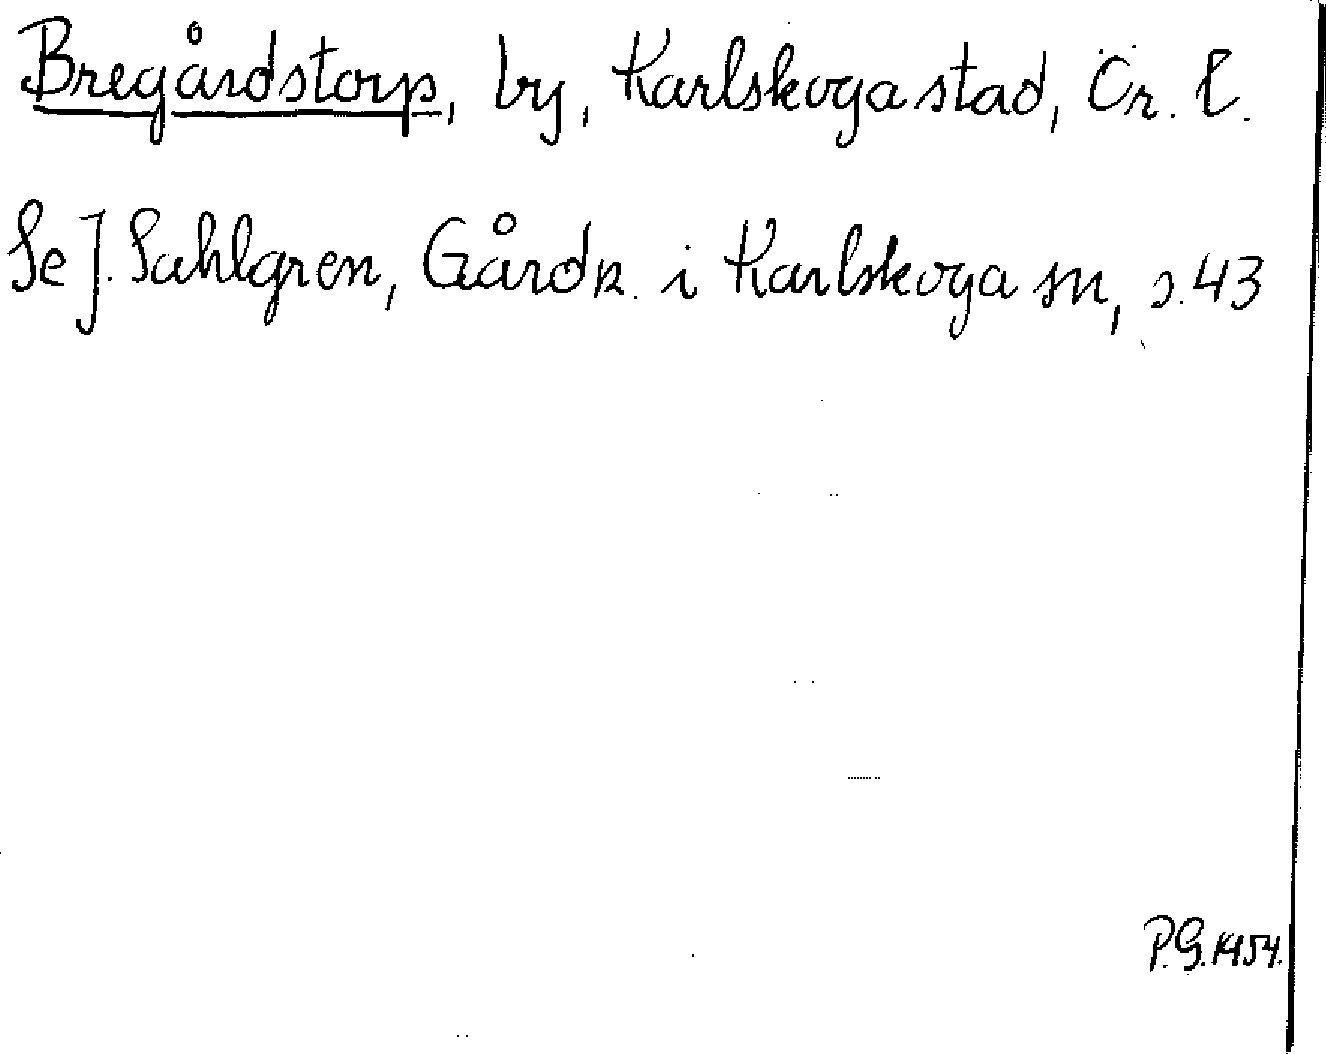 Bregårdstorp, by, Karlskoga stad, Ör. l.
Se J. Sahlgren, Gårdn. i Karlskoga sn, s. 43
P.G. 1954.